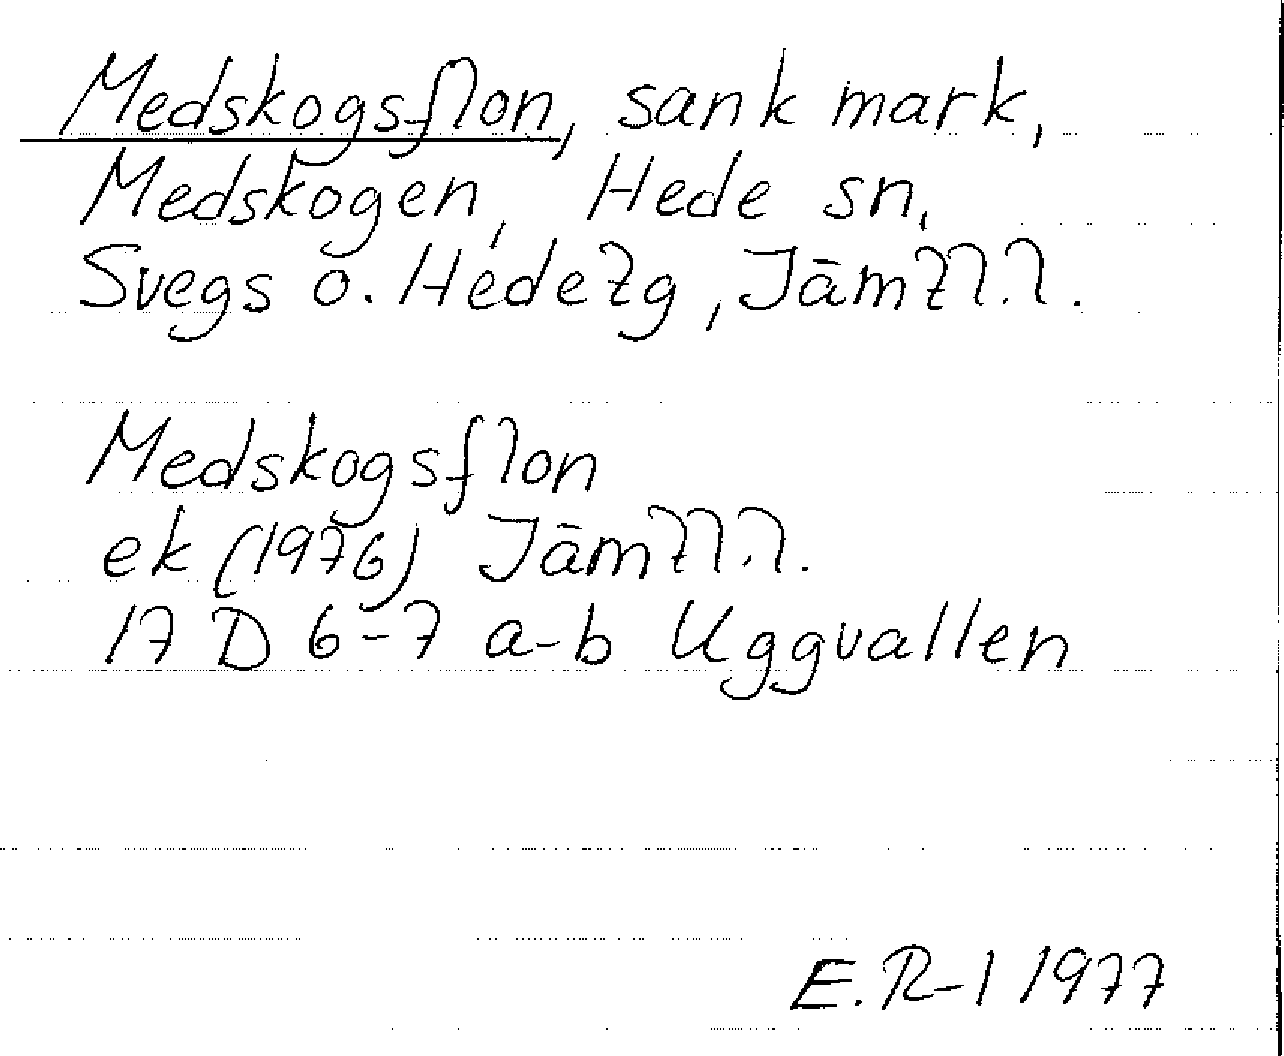 Medskogsflon, sank mark,
Medskogen, Hede sn,
Svegs o. Hede tg, Jämtl.l.
Medskogsflon
ek (1976) Jämtl.l.
17 D 6-7 a-b Uggvallen
E.R-l 1977